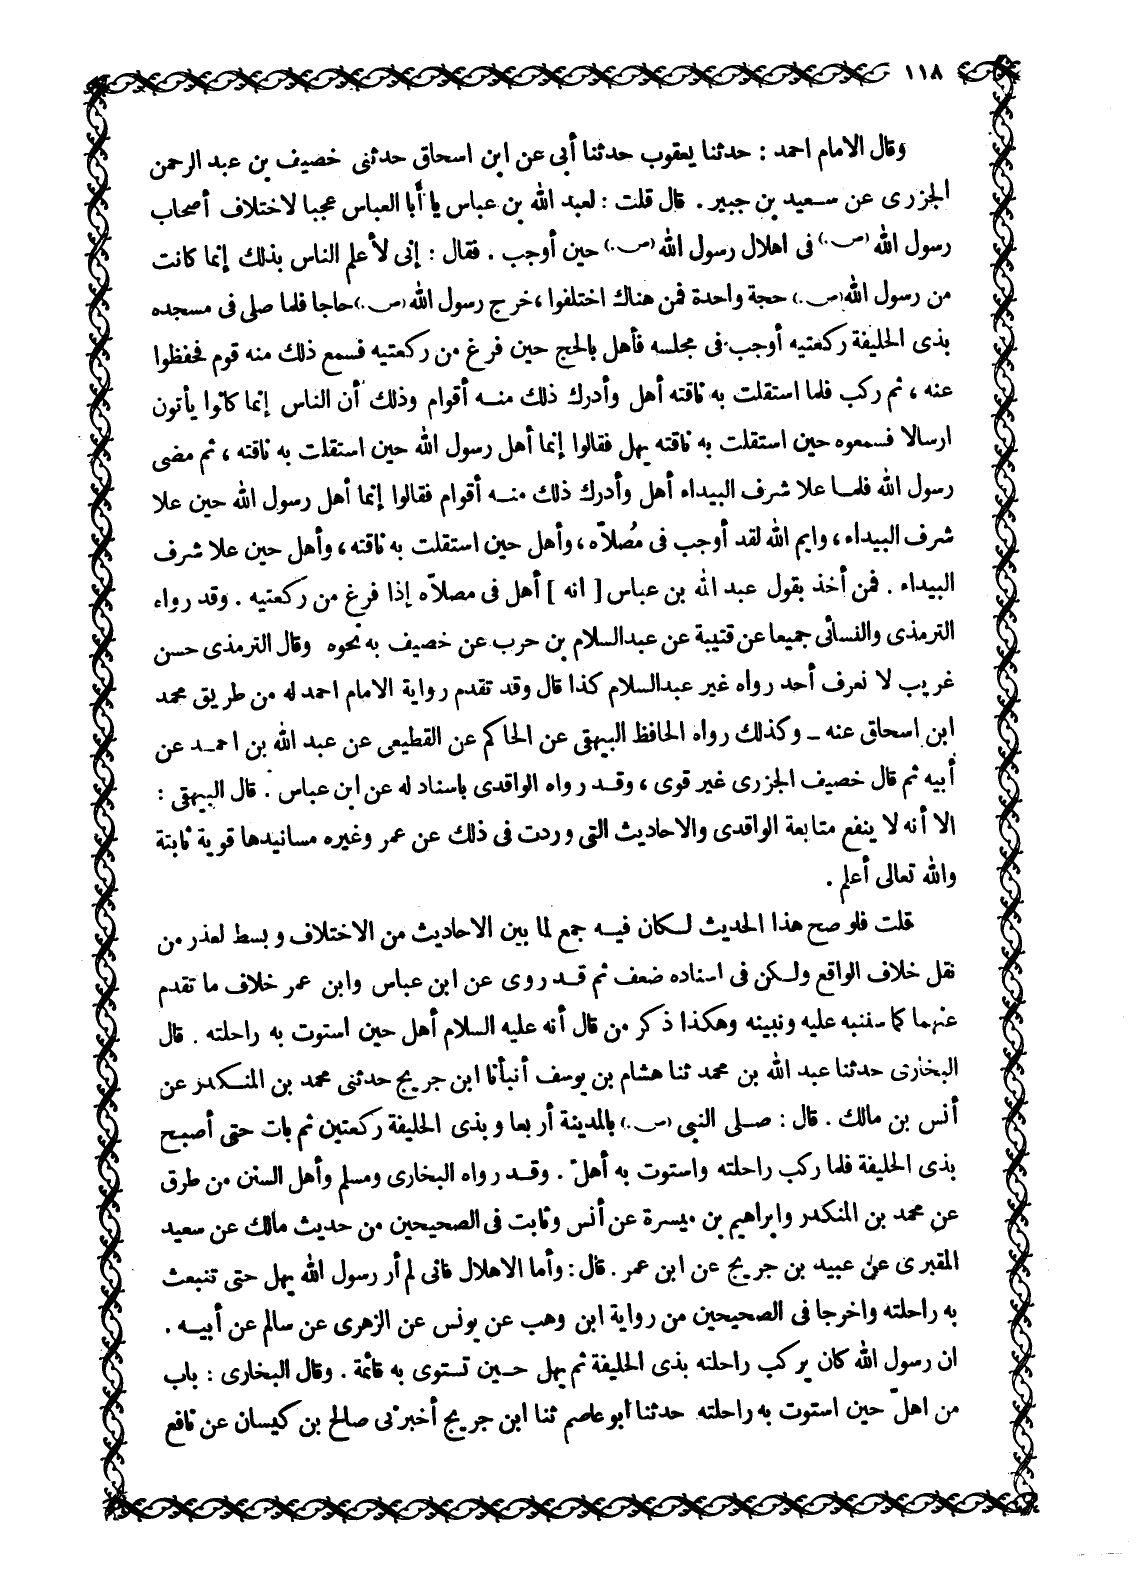 ١١٨
وقال الامام احمد : حدثنا يعقوب حدثنا أبي عن ابن اسحاق حدثنى خصيف بن عبد الرحمن
الجزرى عن سعيد بن جبير . قال قلت : لعبد الله بن عباس يا أبا العباس عجبا لاختلاف أصحاب
رسول الله (ص.) فى اهلال رسول الله (ص.) حين أوجب . فقال : إنى لأعلم الناس بذلك إنما كانت
من رسول الله (ص.) حجة واحدة فمن هناك اختلفوا ، خرج رسول الله (ص.) حاجا فلما صلى فى مسجده
بذى الحليفة ركعتيه أوجب فى مجلسه فأهل بالحج حين فرغ من ركعتيه فسمع ذلك منه قوم فحفظوا
عنه ، ثم ركب فلما استقلت به ناقته أهل وأدرك ذلك منه أقوام وذلك أن الناس إنما كانوا يأتون
ارسالا فسمعوه حين استقلت به ناقته يهل فقالوا إنما أهل رسول الله حين استقلت به ناقته ، ثم مضى
رسول الله فلما علا شرف البيداء أهل وأدرك ذلك منه أقوام فقالوا إنما أهل رسول الله حين علا
شرف البيداء ، وايم الله لقد أوجب فى مُصلاّه ، وأهل حين استقلت به ناقته ، وأهل حين علا شرف
البيداء . فمن أخذ بقول عبد الله بن عباس [ انه ] أهل فى مصلاّه إذا فرغ من ركعتيه . وقد رواه
الترمذى والنسائى جميعا عن قتيبة عن عبدالسلام بن حرب عن خصيف به نحوه وقال الترمذى حسن
غريب لا نعرف أحد رواه غير عبدالسلام كذا قال وقد تقدم رواية الامام احمد له من طريق محمد
ابن اسحاق عنه ــ وكذلك رواه الحافظ البيهقى عن الحاكم عن القطيعى عن عبد الله بن احمد عن
أبيه ثم قال خصيف الجزرى غير قوى ، وقد رواه الواقدى باسناد له عن ابن عباس . قال البيهقى :
الا أنه لا ينفع متابعة الواقدى والاحاديث التى وردت فى ذلك عن عمر وغيره مسانيدها قوية ثابتة
والله تعالى أعلم .
قلت فلو صح هذا الحديث لكان فيه جمع لما بين الاحاديث من الاختلاف وبسط لعذر من
نقل خلاف الواقع ولكن فى اسناده ضعف ثم قد روى عن ابن عباس وابن عمر خلاف ما تقدم
عنهما كما سننبه عليه ونبينه وهكذا ذكر من قال أنه عليه السلام أهل حين استوت به راحلته . قال
البخارى حدثنا عبد الله بن محمد ثنا هشام بن يوسف أنبأنا ابن جريج حدثنى محمد بن المنكدر عن
أنس بن مالك . قال : صلى النبى (ص.) بالمدينة أربعا وبذى الحليفة ركعتين ثم بات حتى أصبح
بذى الحليفة فلما ركب راحلته واستوت به أهلّ . وقد رواه البخارى ومسلم وأهل السنن من طرق
عن محمد بن المنكدر وابراهيم بن ميسرة عن أنس وثابت فى الصحيحين من حديث مالك عن سعيد
المقبرى عن عبيد بن جريج عن ابن عمر . قال : وأما الاهلال فانى لم أر رسول الله يهل حتى تنبعث
به راحلته واخرجا فى الصحيحين من رواية ابن وهب عن يونس عن الزهرى عن سالم عن أبيه .
ان رسول الله كان يركب راحلته بذى الحليفة ثم يهل حين تستوى به قائمة . وقال البخارى : باب
من اهلّ حين استوت به راحلته حدثنا ابو عاصم ثنا ابن جريج أخبرنى صالح بن كيسان عن نافع